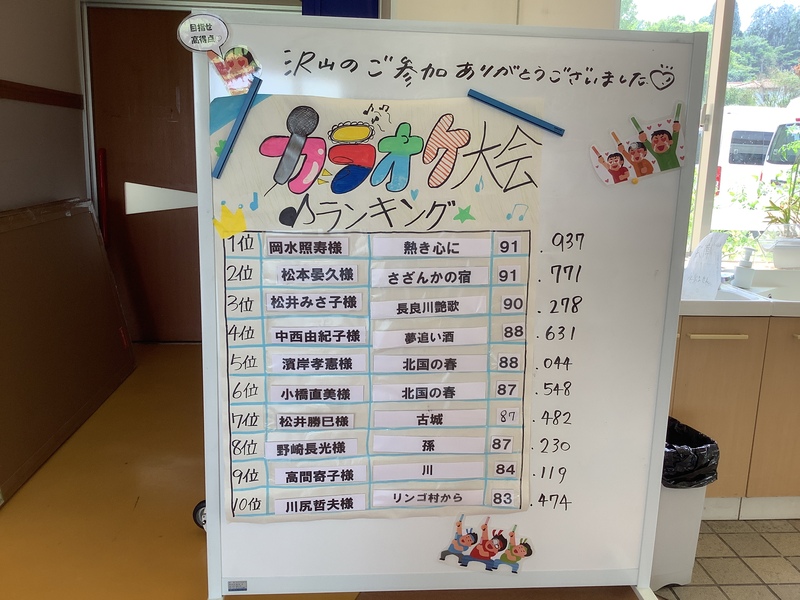 目指せ
高得点
沢山のご参加ありがとうございました♡
カラオケ大会
♪ランキング
1位 岡水照寿様 熱き心に 91 .937
2位 松本晏久様 さざんかの宿 91 .771
3位 松井みさ子様 長良川艶歌 90 .278
4位 中西由紀子様 夢追い酒 88 .631
5位 濱岸孝憲様 北国の春 88 .044
6位 小橋直美様 北国の春 87 .548
7位 松井勝巳様 古城 87 .482
8位 野崎長光様 孫 87 .230
9位 高間寄子様 川 84 .119
10位 川尻哲夫様 リンゴ村から 83 .474